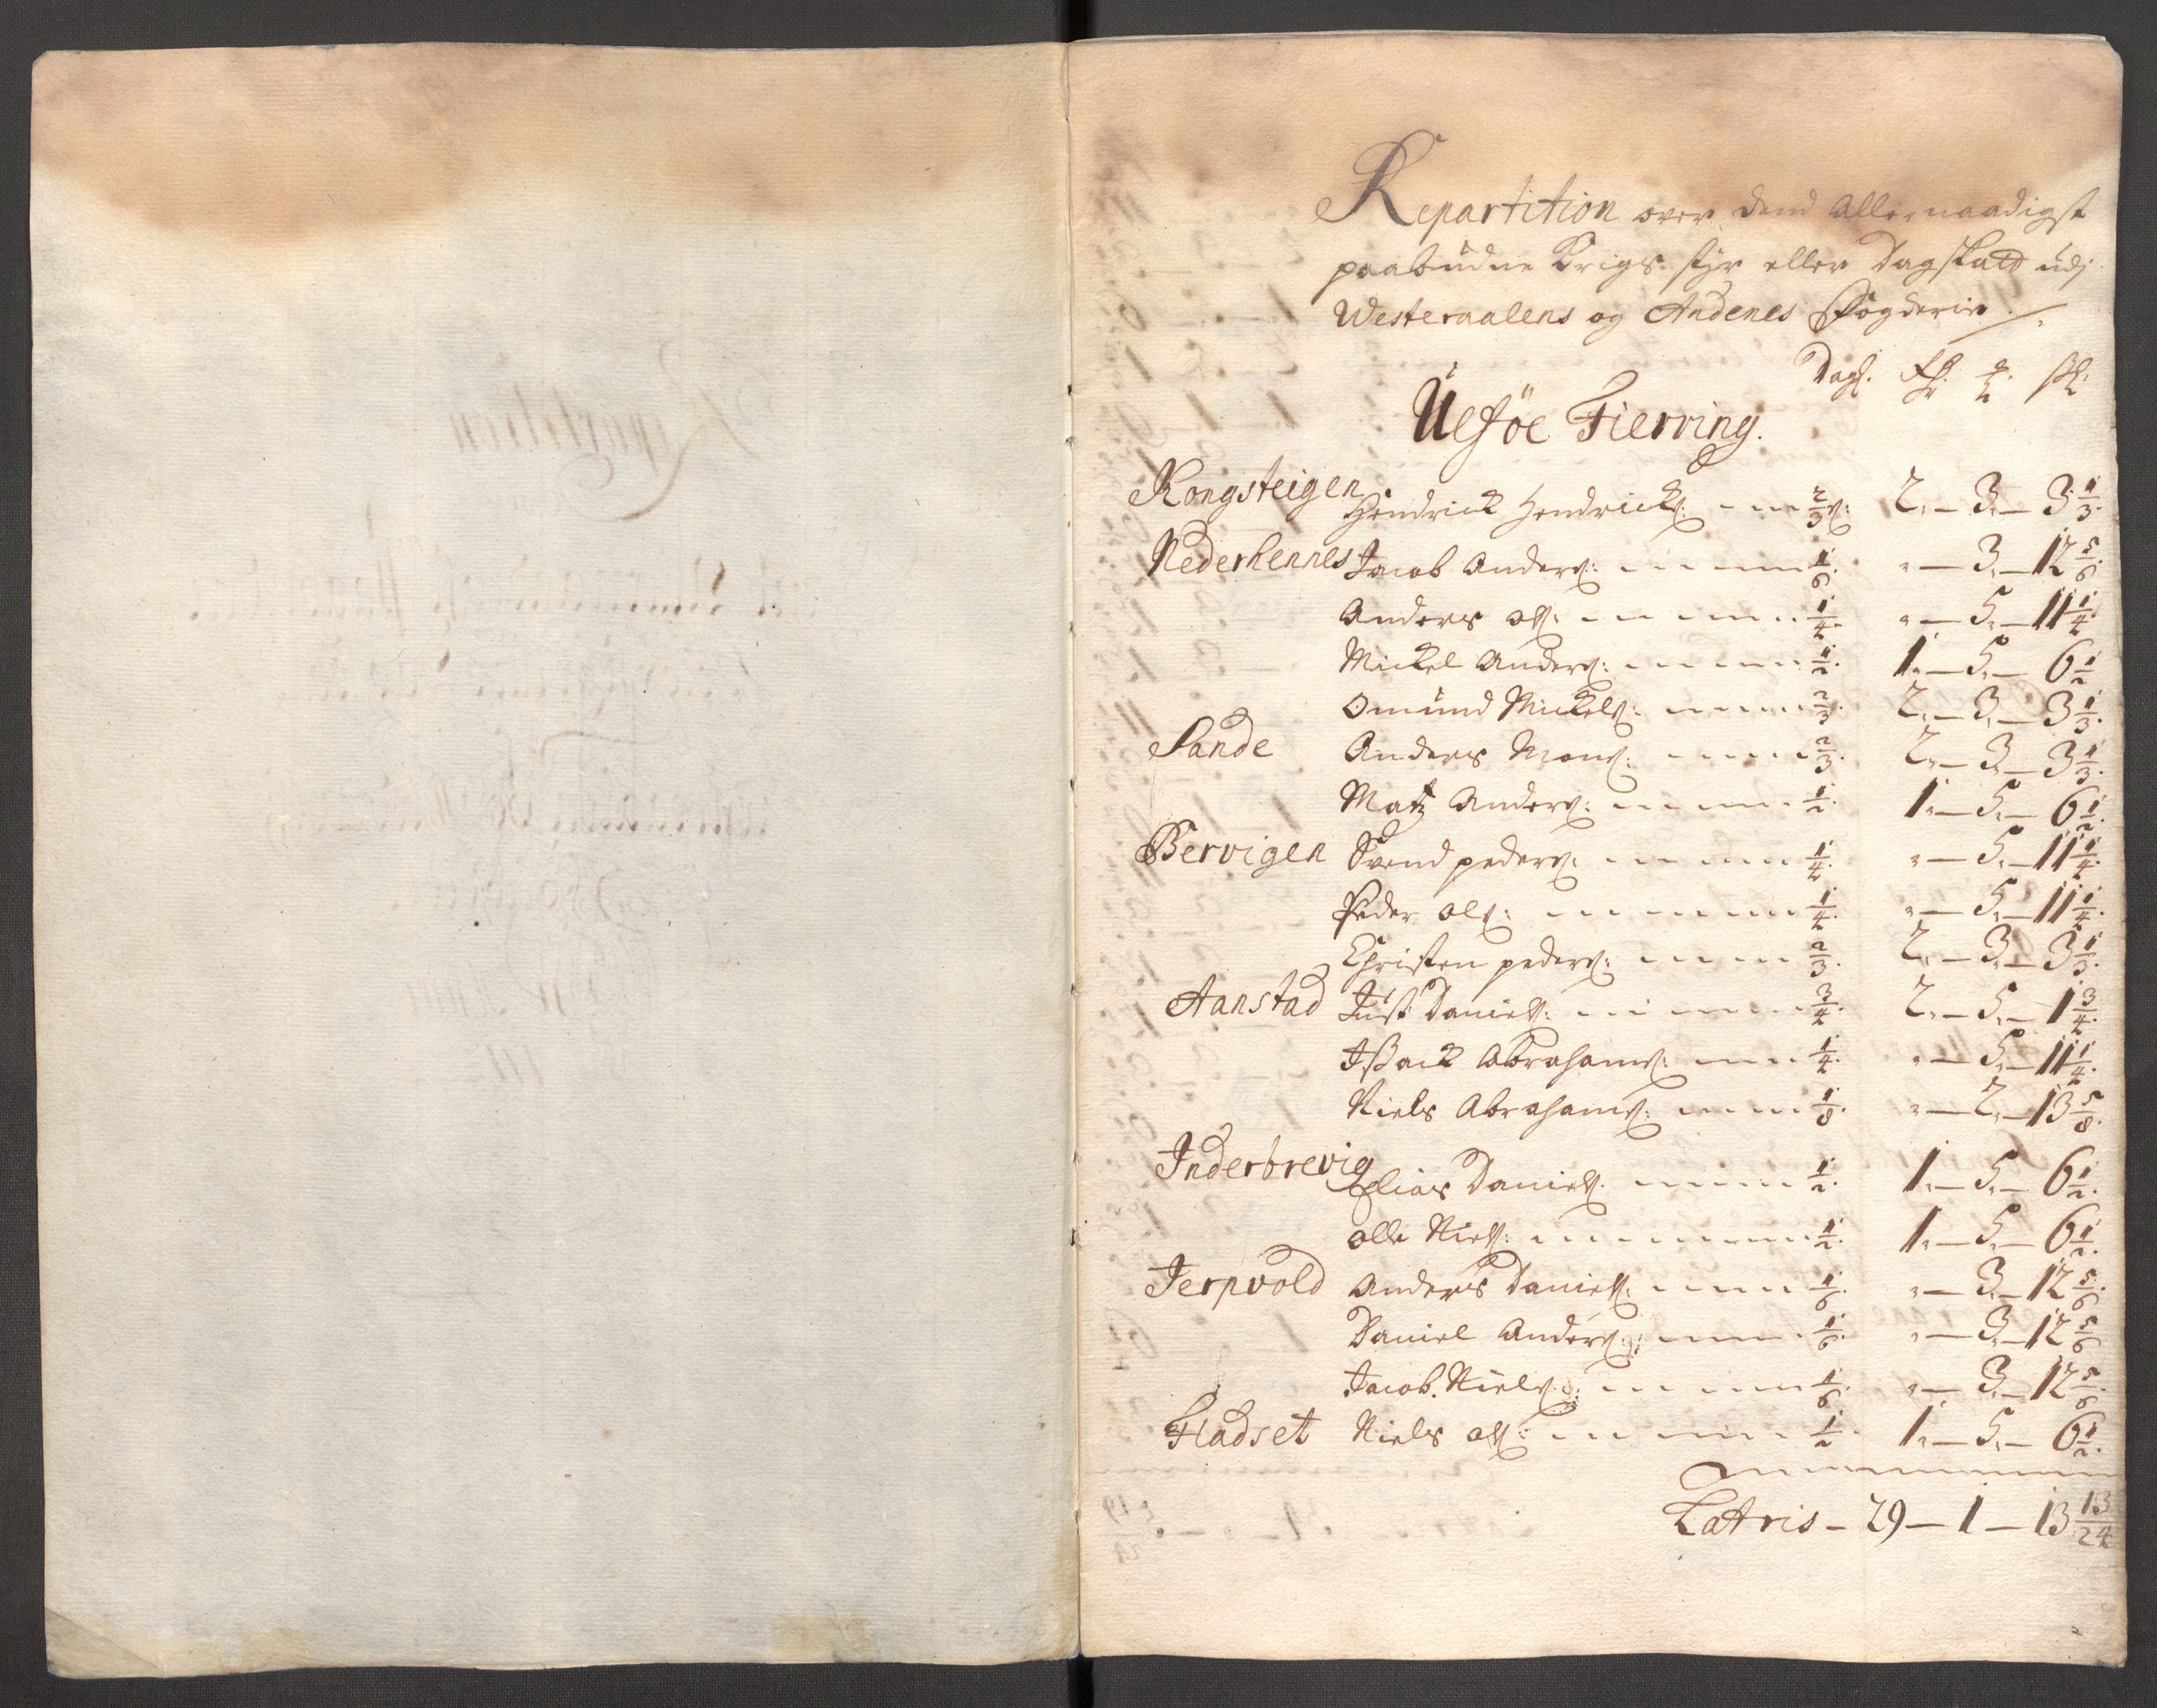 Repartition over dend Allernaadigst
paabudne Krigs styr eller Dagskatt udj
Westeraalens og Andenes Fogderie
Dags. Rdr. ort. sk:
Ulføe Fierring.
Kongsteigen Hendrick Hendricks: 2/3 2 - 3 - 3 1/3
Nederhennes Jacob Anders: 1/6 " - 3 - 12 5/6
Anders Ols: 1/4 " - 5 - 11 1/4
Mickel Anders: 1/2 1 - 5 - 6 1/2
Omund Mickels: 2/3 2 - 3 - 3 1/3
Sande Anders Mons: 2/3 2 - 3 - 3 1/3
Matz Anders: 1/2 1 - 5 - 6 1/2
Bervigen Svend peders: 1/4 " - 5 - 11 1/4
Peder Ols: 1/4 " - 5 - 11 1/4
Christen peders: 2/3 2 - 3 - 3 1/3
Aanstad Just Daniels: 3/4 2 - 5 - 1 3/4
Jssack Abrahams: 1/4 " - 5 - 11 1/4
Niels Abrahams: 1/8 " - 2 - 13 5/8
Inderbrevig Elias Daniels: 1/2 1 - 5 - 6 1/2
Olle Niels: 1/2 1 - 5 - 6 1/2
Jerpvold Anders Daniels: 1/6 " - 3 - 12 5/6
Daniel Anders: 1/6 " - 3 - 12 5/6
Jacob Niels: 1/6 " - 3 - 12 5/6
Fladset Niels Ols: 1/2 1 - 5 - 6 1/2
Latris - 29 - 1 - 13 13/24